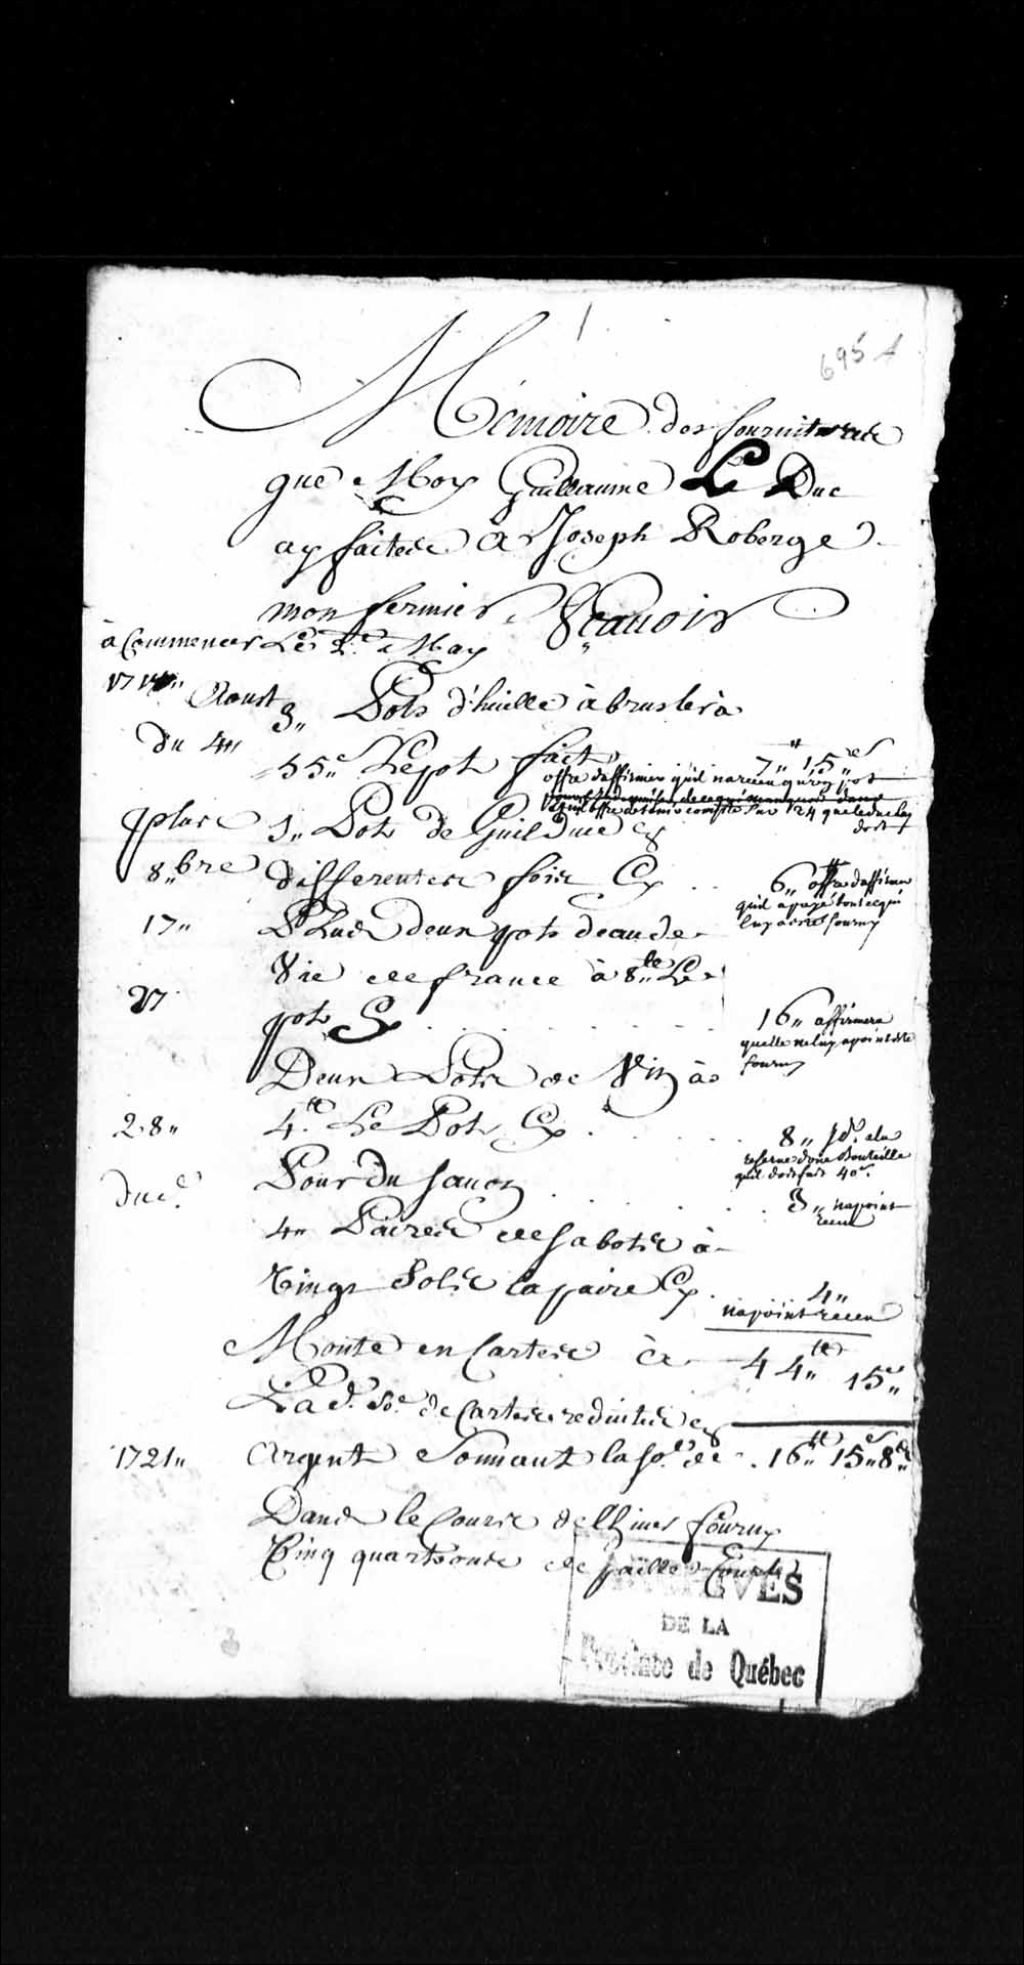 1
695 A
Mémoire des fournitures
que Moy Guillaume Le Duc
ay faites A Joseph Roberge
mon fermier Sçauoir
à Commencer Le 2e May
1714 Aoust 3,, Pots d'huille à brusler à
du 4,, 55s Le pot fait 7,,tt 15,,s
offre daffirmer quil na receu qu'un pot
quil offre de tenir compte sur 124 que leduc luy doit
plus 3,, Pots de Guildiue en
8,,bre differentes fois Cy .. 6,,tt offre daffirmer
quil a payé tout ce qui
luy a esté fourny
17,, Plus deux pots deau de
Vie de france à 8,,tt Le
27 pot Cy . . . . . . . 16,, affirmera
quelle ne luy a point esté
fourny
Deux Pots de Vin à
2.8,, 4.tt Le Pot Cy . . . . . 8,, Id. a la
reserue d'une Bouteille
quil doit fait 40s.
du d. Pour du sauon . . . . . 3,, na point
receu
4,, Paires de sabots à
Vingt Sols la paire Cy . . . . 4,,
na point receu
Monte en Cartes à 44,,tt 15,,s
La d. so.e de Cartes reduite en
1721,, Argent Sonnant la so.e de . 16,,tt 15,,s 8,,d
Dans le Cours de lhiuer fourny
Cinq quarterons de paille Courte
ARCHIVES
DE LA
Province de Québec